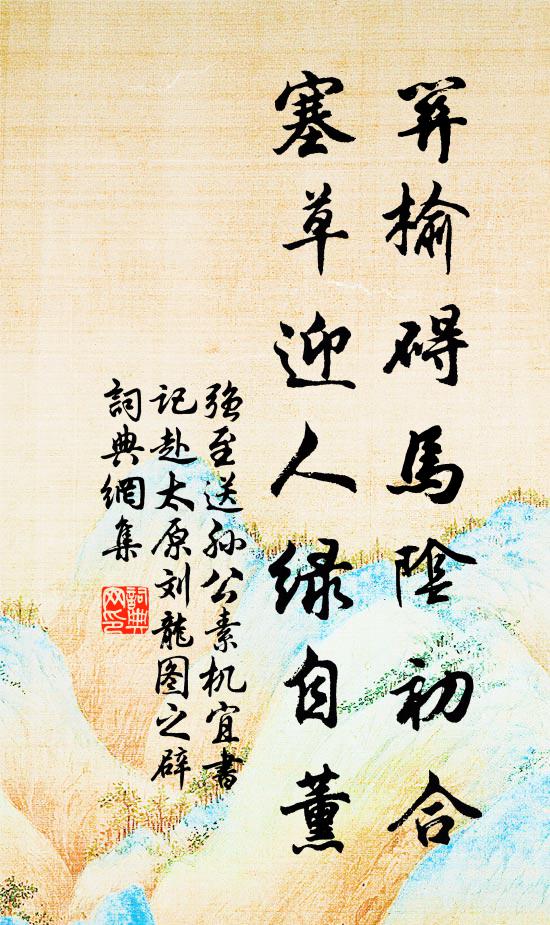 笄榆碍馬陰初合
塞草迎人绿自薰
强至送孙公素机宜書
记赴太原刘龍图之辟
詞典網集
詞典
网印